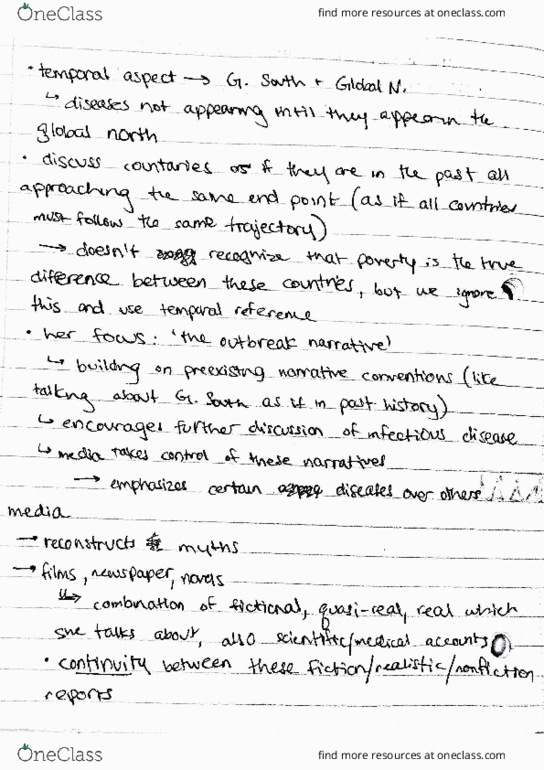 OneClass
find more resources at oneclass.com
• temporal aspect → G. South + Global N.
↳ diseases not appearing until they appear in the
global north
• discuss countaries as if they are in the past all
approaching the same end point (as if all countries
must follow the same trajectory)
→ doesn't recognize that poverty is the true
difference between these countries, but we ignore
this and use temporal reference
• her focus: 'the outbreak narrative'
↳ building on preexisting narrative conventions (like
talking about G. South as if in past history)
↳ encourages further discussion of infectious disease
↳ media takes control of these narratives
→ emphasizes certain diseases over others
media
→ reconstructs myths
→ films, newspaper, novels
↳ combination of fictional, quasi-real, real which
she talks about, also scientific/medical accounts
• continuity between these fiction/realistic/nonfiction
reports
OneClass
find more resources at oneclass.com